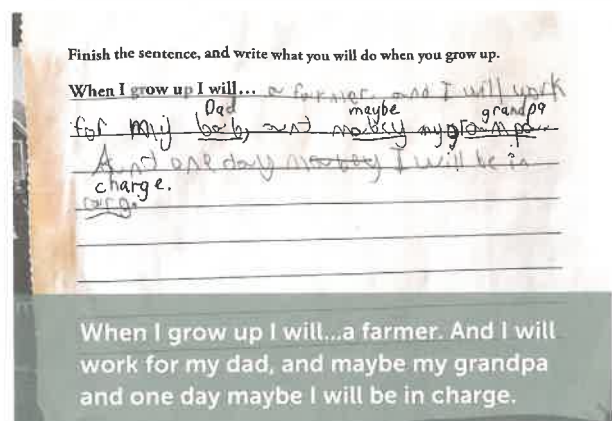 Finish the sentence, and write what you will do when you grow up.
When I grow up I will... a farmer and I will work
Dad maybe grandpa
for my bab, and mabey my grampa.
And one day mabey I will be in
charge.
carg.
When I grow up I will...a farmer. And I will
work for my dad, and maybe my grandpa
and one day maybe I will be in charge.